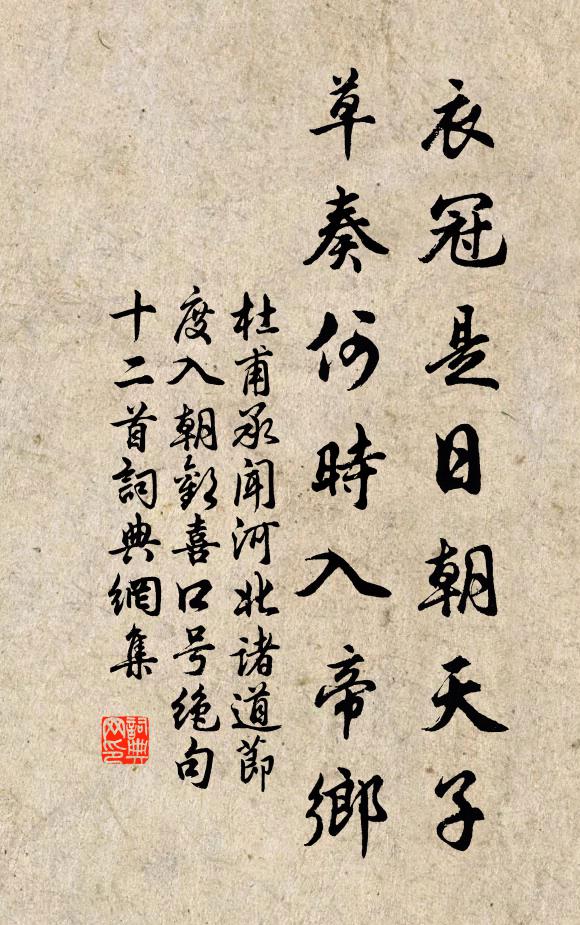 衣冠是日朝天子
草奏何時入帝鄉
杜甫承闻河北諸道節
度入朝歡喜口号绝句
十二首詞典網集
詞典
网印